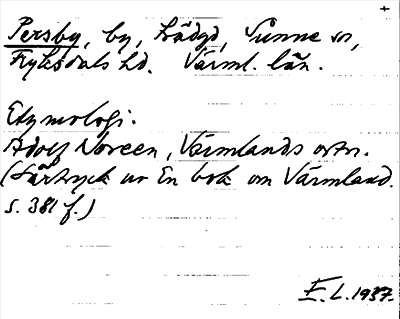 +
Persby, by, Lådgd, Sunne sn,
Fryksdals hd. Värml. län.
Etymologi.
Adolf Noreen, Värmlands ortn.
(Särtryck ur En bok om Värmland.
s. 381 f.)
E.L. 1937.